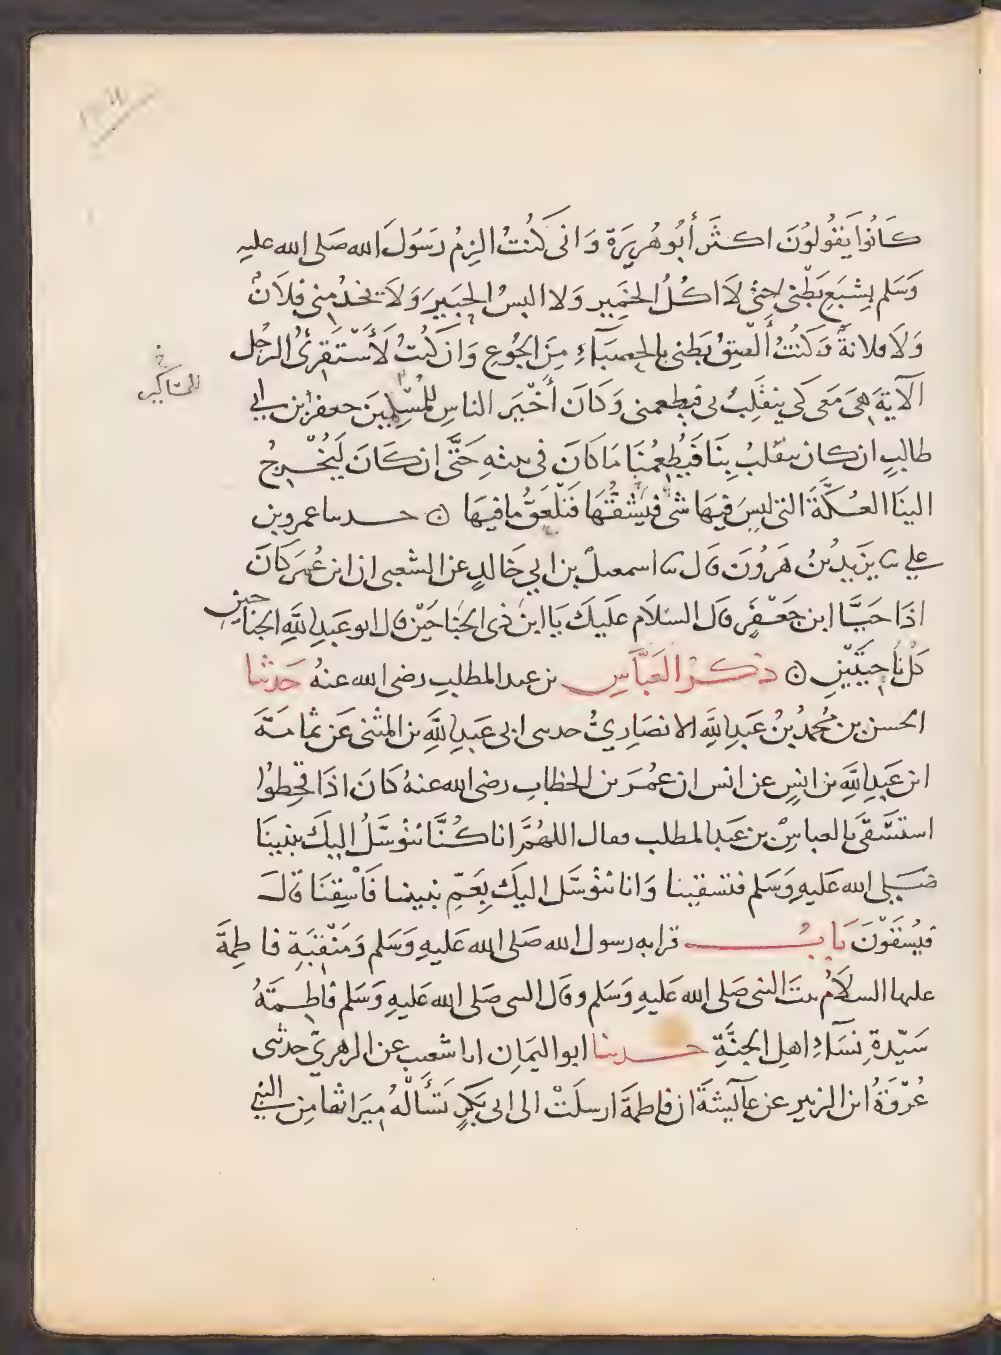 كَانُوا يَقُولُونَ اكثَرَ أَبُو هُرَيرَةَ وَانى كُنتُ الزمُ رَسُولَ الله صَلى الله عليهِ
وَسَلم بِشبَعِ بَطْنى حِينَ لَا اكُلُ الخَمِير وَلا البسُ الحَبيرَ وَلَا يَخدُمنى فُلَانٌ
وَلَا فلانةُ وَكُنتُ أُلْصِقُ بَطنى بالحصبَاءِ مِنَ الجُوعِ وَان كُنتُ لَأَسْتَقرِئُ الرجُل
الآيةَ هىَ مَعى كى يَنقَلِبُ بى فيطعمنى وَكَانَ أَخْيَر الناسِ للمُسْلِمِينَ جعفرُ بن ابى
للمساكين
خ
طالبٍ ان كان ينقلبُ بِنَا فَيُطعِمُنَا مَا كَانَ فى بيتهِ حَتَّى ان كَانَ لَيُخْرِجُ
الينَا العُكَّةَ التى ليسَ فيهَا شئ فيَشُقُّهَا فَنَلْعَقُ ما فيهَا ۞ حدثنا عمرو بن
على ثنا يَزيدُ بنُ هَرُونَ قَال ثنا اسمعيلُ بن ابي خَالدٍ عن الشعبى ان ابن عُمَرَ كَانَ
اذَا حَيَّا ابن جَعْفَرٍ قَال السَلَام عَليكَ يَا ابنَ ذى الجنَاحَيْن قال ابو عَبدِ اللهِ الجناحَين
كُلُّ نَاحِيَتَيْنِ ۞ ذكرُ العَبَّاسِ بن عبد المطلبِ رضى الله عنهُ حَدثنا
الحسن بن مُحمدٍ بنُ عَبدِ اللهِ الانصَارِىُّ حدثنى ابى عَبدِ اللهِ بن المُثنى عَن ثُمامَةَ
ابن عَبدِ اللهِ بن انسٍ عن انس ان عمُرَ بن الخطابِ رضى الله عنهُ كَانَ اذَا قحِطوُا
استَسْقَى بالعباسِ بن عَبد المطلب فقال اللهُمَّ انا كُنَّا نتَوسَّلُ اليكَ بنبينَا
صَلى الله عَليهِ وَسَلم فتسقينا وَانا نتَوسَّل اليكَ بِعَمِّ نبينا فَاسْقِنَا قَالَ
فيُسْقَوْنَ بَابُ قرابه رسول الله صَلى الله عَليهِ وَسَلم وَمَنْقَبَةِ فَاطِمَةَ
عليها السلَامُ بنتَ النبى صَلى الله عَليهِ وَسَلم وقَال النبى صَلى الله عَليهِ وَسَلم فَاطِمَةُ
سَيّدةُ نِسَآءِ اهلِ الجنَّةِ حدثنا ابو اليَمَانِ انا شعيب عن الزهرىّ حدثنى
عُرْوَةُ ابن الزبيرِ عن عَآئِشَةَ ان فاطمَةَ ارسلَتْ الى ابى بَكرٍ تَسْألُهُ مِيرَاثَها مِن النبى